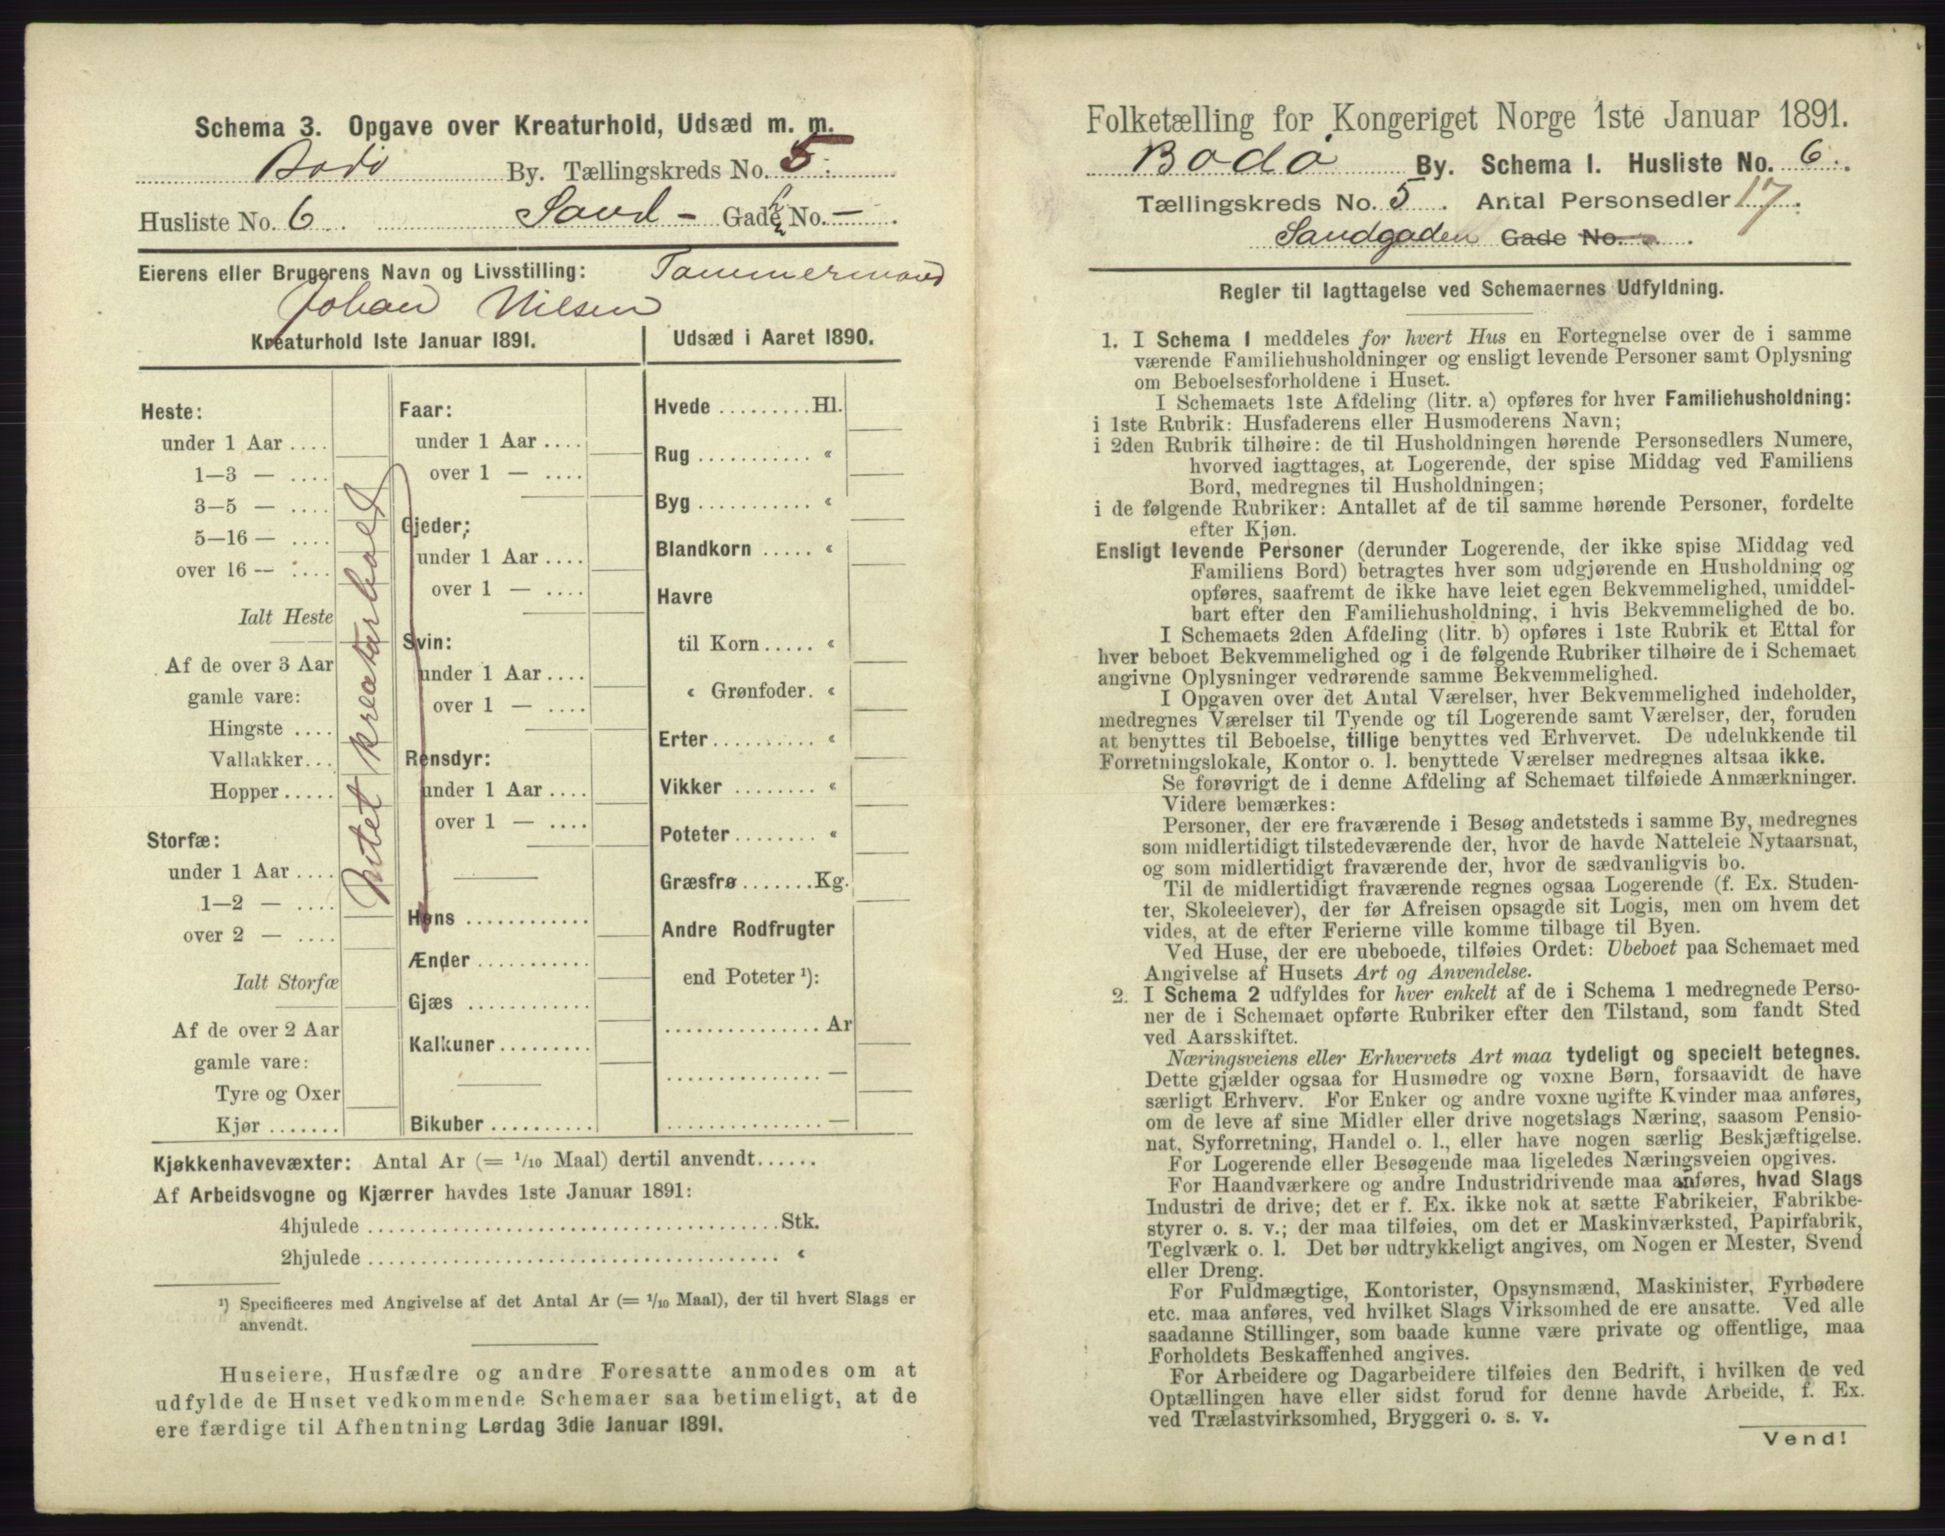 Schema 3. Opgave over Kreaturhold, Udsæd m. m.
Bodø By. Tællingskreds No. 5.
Husliste No. 6. Sand - Gaden No. -
Eierens eller Brugerens Navn og Livsstilling: Tømmermand
Johan Nilsen
Kreaturhold 1ste Januar 1891.
Heste:
under 1 Aar ....
1—3 — ....
3—5 — ....
5—16 — ....
over 16 — ....
Ialt Heste
Af de over 3 Aar
gamle vare:
Hingste ....
Vallakker...
Hopper.....
Storfæ:
under 1 Aar ....
1—2 — ....
over 2 — ....
Ialt Storfæ
Af de over 2 Aar
gamle vare:
Tyre og Oxer
Kjør .......
Intet kreaturhold
Faar:
under 1 Aar ....
over 1 — ....
Gjeder:
under 1 Aar ....
over 1 — ....
Svin:
under 1 Aar ....
over 1 — ....
Rensdyr:
under 1 Aar ....
over 1 — ....
Høns ............
Ænder ...........
Gjæs ............
Kalkuner .........
Bikuber ..........
Udsæd i Aaret 1890.
Hvede ......... Hl.
Rug ........... «
Byg ........... «
Blandkorn ..... «
Havre
til Korn ..... «
« Grønfoder. «
Erter .......... «
Vikker ........ «
Poteter ........ «
Græsfrø ....... Kg.
Andre Rodfrugter
end Poteter ¹):
............... Ar
............... —
............... —
Kjøkkenhavevæxter: Antal Ar (= 1/10 Maal) dertil anvendt......
Af Arbeidsvogne og Kjærrer havdes 1ste Januar 1891:
4hjulede ........................................ Stk.
2hjulede ........................................ «
¹) Specificeres med Angivelse af det Antal Ar (= 1/10 Maal), der til hvert Slags er
anvendt.
Huseiere, Husfædre og andre Foresatte anmodes om at
udfylde de Huset vedkommende Schemaer saa betimeligt, at de
ere færdige til Afhentning Lørdag 3die Januar 1891.
Folketælling for Kongeriget Norge 1ste Januar 1891.
Bodø By. Schema I. Husliste No. 6.
Tællingskreds No. 5. Antal Personsedler 17.
Sandgaden Gade No.
Regler til Iagttagelse ved Schemaernes Udfyldning.
1. I Schema 1 meddeles for hvert Hus en Fortegnelse over de i samme
værende Familiehusholdninger og ensligt levende Personer samt Oplysning
om Beboelsesforholdene i Huset.
I Schemaets 1ste Afdeling (litr. a) opføres for hver Familiehusholdning:
i 1ste Rubrik: Husfaderens eller Husmoderens Navn;
i 2den Rubrik tilhøire: de til Husholdningen hørende Personsedlers Numere,
hvorved iagttages, at Logerende, der spise Middag ved Familiens
Bord, medregnes til Husholdningen;
i de følgende Rubriker: Antallet af de til samme hørende Personer, fordelte
efter Kjøn.
Ensligt levende Personer (derunder Logerende, der ikke spise Middag ved
Familiens Bord) betragtes hver som udgjørende en Husholdning og
opføres, saafremt de ikke have leiet egen Bekvemmelighed, umiddel-
bart efter den Familiehusholdning, i hvis Bekvemmelighed de bo.
I Schemaets 2den Afdeling (litr. b) opføres i 1ste Rubrik et Ettal for
hver beboet Bekvemmelighed og i de følgende Rubriker tilhøire de i Schemaet
angivne Oplysninger vedrørende samme Bekvemmelighed.
I Opgaven over det Antal Værelser, hver Bekvemmelighed indeholder,
medregnes Værelser til Tyende og til Logerende samt Værelser, der, foruden
at benyttes til Beboelse, tillige benyttes ved Erhvervet. De udelukkende til
Forretningslokale, Kontor o. l. benyttede Værelser medregnes altsaa ikke.
Se forøvrigt de i denne Afdeling af Schemaet tilføiede Anmærkninger.
Videre bemærkes:
Personer, der ere fraværende i Besøg andetsteds i samme By, medregnes
som midlertidigt tilstedeværende der, hvor de havde Natteleie Nytaarsnat,
og som midlertidigt fraværende der, hvor de sædvanligvis bo.
Til de midlertidigt fraværende regnes ogsaa Logerende (f. Ex. Studen-
ter, Skoleelever), der før Afreisen opsagde sit Logis, men om hvem det
vides, at de efter Ferierne ville komme tilbage til Byen.
Ved Huse, der ere ubeboede, tilføies Ordet: Ubeboet paa Schemaet med
Angivelse af Husets Art og Anvendelse.
2. I Schema 2 udfyldes for hver enkelt af de i Schema 1 medregnede Perso-
ner de i Schemaet opførte Rubriker efter den Tilstand, som fandt Sted
ved Aarsskiftet.
Næringsveiens eller Erhvervets Art maa tydeligt og specielt betegnes.
Dette gjælder ogsaa for Husmødre og voxne Børn, forsaavidt de have
særligt Erhverv. For Enker og andre voxne ugifte Kvinder maa anføres,
om de leve af sine Midler eller drive nogetslags Næring, saasom Pensio-
nat, Syforretning, Handel o. l., eller have nogen særlig Beskjæftigelse.
For Logerende eller Besøgende maa ligeledes Næringsveien opgives.
For Haandværkere og andre Industridrivende maa anføres, hvad Slags
Industri de drive; det er f. Ex. ikke nok at sætte Fabrikeier, Fabrikbe-
styrer o. s. v.; der maa tilføies, om det er Maskinværksted, Papirfabrik,
Teglværk o. l. Det bør udtrykkeligt angives, om Nogen er Mester, Svend
eller Dreng.
For Fuldmægtige, Kontorister, Opsynsmænd, Maskinister, Fyrbødere
etc. maa anføres, ved hvilket Slags Virksomhed de ere ansatte. Ved alle
saadanne Stillinger, som baade kunne være private og offentlige, maa
Forholdets Beskaffenhed angives.
For Arbeidere og Dagarbeidere tilføies den Bedrift, i hvilken de ved
Optællingen have eller sidst forud for denne havde Arbeide, f. Ex.
ved Trælastvirksomhed, Bryggeri o. s. v.
Vend!